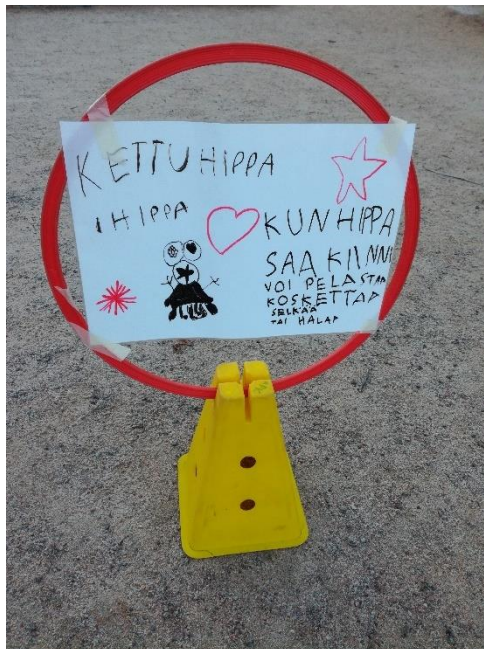 KETTUHIPPA
1 HIPPA
KUN HIPPA
SAA KIINNI
VOI PELASTAA
KOSKETTAA
SELKÄÄ
TAI HALAA